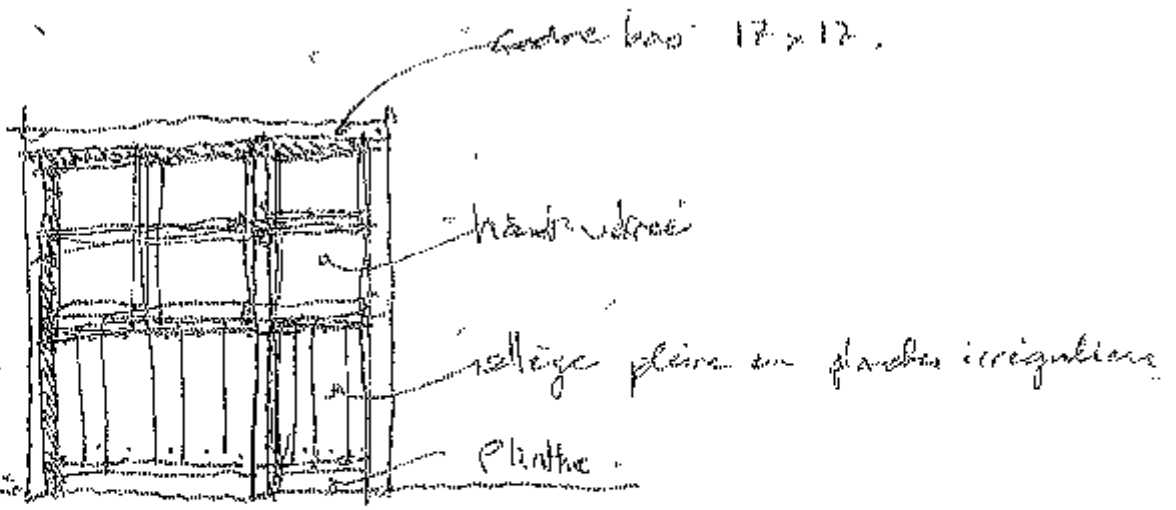 cadre bois 17 x 17.
haut vitré
allège pleine en planches irrégulières
Plinthe.